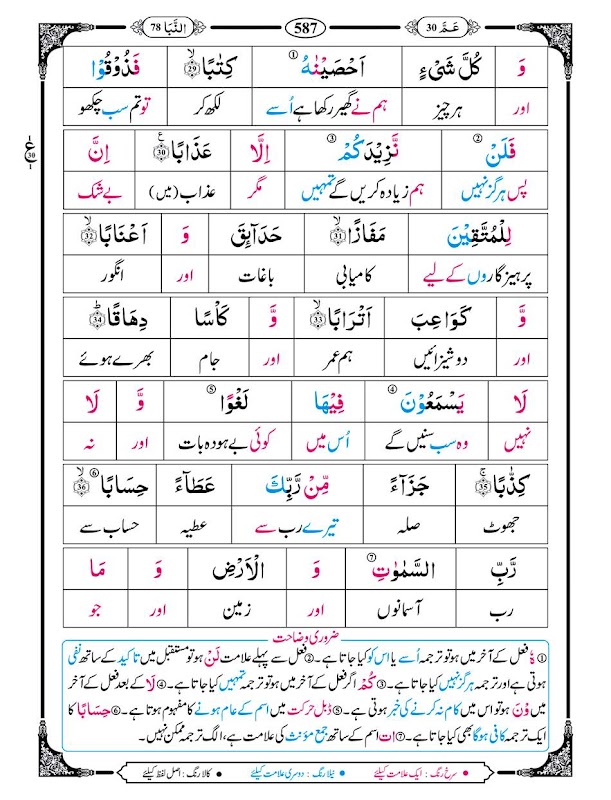 النَّبَا 78 587 عَمَّ 30
وَ كُلَّ شَیْءٍ اَحْصَیْنٰهُ ① كِتٰبًا ۙ۲۹ فَذُوْقُوْا
اور ہر چیز ہم نے گھیر رکھا ہے اُسے لکھ کر تو تم سب چکھو
ع 30
فَلَنْ ② نَّزِیْدَكُمْ ③ اِلَّا عَذَابًا ۠۳۰ اِنَّ
پس ہرگز نہیں ہم زیادہ کریں گے تمہیں مگر عذاب (میں) بے شک
لِلْمُتَّقِیْنَ مَفَازًا ۙ۳۱ حَدَآئِقَ وَ اَعْنَابًا ۙ۳۲
پرہیزگاروں کے لیے کامیابی باغات اور انگور
وَّ كَوَاعِبَ اَتْرَابًا ۙ۳۳ وَّ كَاْسًا دِهَاقًا ؕ۳۴
اور دوشیزائیں ہم عمر اور جام بھرے ہوئے
لَا یَسْمَعُوْنَ ④ فِیْهَا لَغْوًا ⑤ وَّ لَا
نہیں وہ سب سنیں گے اُس میں کوئی بے ہودہ بات اور نہ
كِذّٰبًا ۚ۳۵ جَزَآءً مِّنْ رَّبِّكَ عَطَآءً حِسَابًا ⑥ ۙ۳۶
جھوٹ صلہ تیرے رب سے عطیہ حساب سے
رَّبِّ السَّمٰوٰتِ ⑦ وَ الْاَرْضِ وَ مَا
رب آسمانوں اور زمین اور جو
ضروری وضاحت
① هٗ فعل کے آخر میں ہو تو ترجمہ اُسے یا اس کو کیا جاتا ہے۔ ② فعل سے پہلے علامت لَنْ ہو تو مستقبل میں تاکید کے ساتھ نفی
ہوتی ہے اور ترجمہ ہرگز نہیں کیا جاتا ہے۔ ③ كُمْ اگر فعل کے آخر میں ہو تو ترجمہ تمہیں کیا جاتا ہے۔ ④ لَا کے بعد فعل کے آخر
میں وْنَ ہو تو اس میں کام نہ کرنے کی خبر ہوتی ہے۔ ⑤ ڈبل حرکت میں اسم کے عام ہونے کا مفہوم ہوتا ہے۔ ⑥ حِسَابًا کا
ایک ترجمہ کافی ہوگا بھی کیا جاتا ہے۔ ⑦ ات اسم کے ساتھ جمع مؤنث کی علامت ہے، الگ ترجمہ ممکن نہیں۔
• سرخ رنگ : ایک علامت کیلئے • نیلا رنگ : دوسری علامت کیلئے • کالا رنگ : اصل لفظ کیلئے